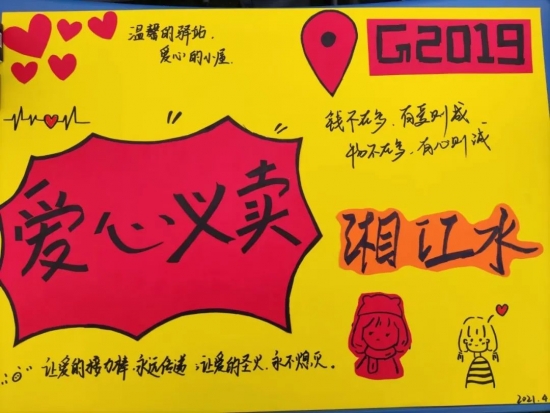 温馨的驿站,
爱心的小屋.
G2019
钱不在多,有爱则诚
物不在多,有心则诚
爱心义卖
湘江水
让爱的接力棒,永远传递;让爱的圣火,永不熄灭。
2021.4